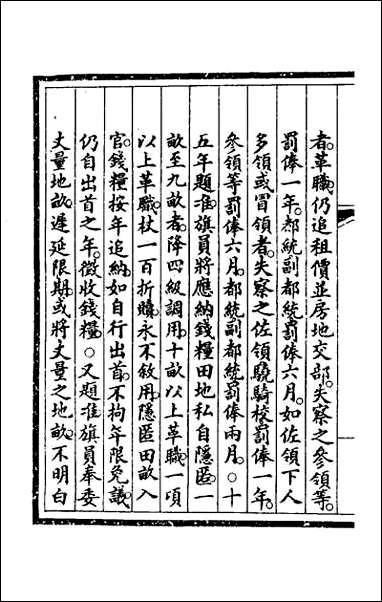 者革職仍追租價並房地交部失察之參領等
罰俸一年都統副都統罰俸六月如佐領下人
多領或冒領者失察之佐領驍騎校罰俸一年
參領等罰俸六月都統副都統罰俸兩月○十
五年題准旗員將應納錢糧田地私自隱匿一
畝至九畝者降四級調用十畝以上革職一項
以上革職杖一百折贖永不敘用隱匿田畝入
官錢糧按年追納如自行出首不拘年限免議
仍自出首之年徵收錢糧○又題准旗員奉委
丈量地畝遲延限期或將丈量之地畝不明白